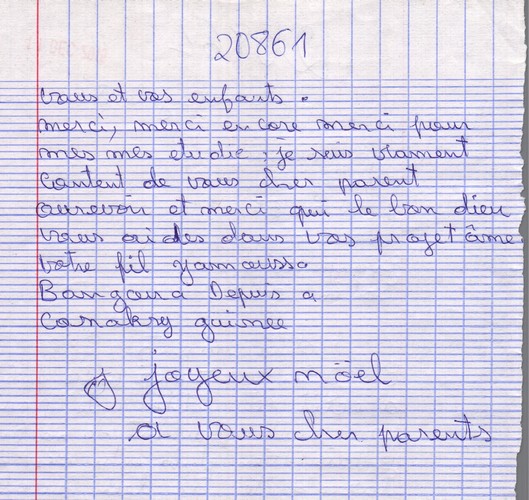 20861
vous et vos enfants.
merci, merci encore merci pour
mes mes etudie, je suis vrament
content de vous cher parent
aurevoir et merci que le bon dieu
vous aides dans vos projet âme
votre fil yamoussa
Bangoura Depuis a
Conakry guinee
joyeux nöel
a vous cher parents